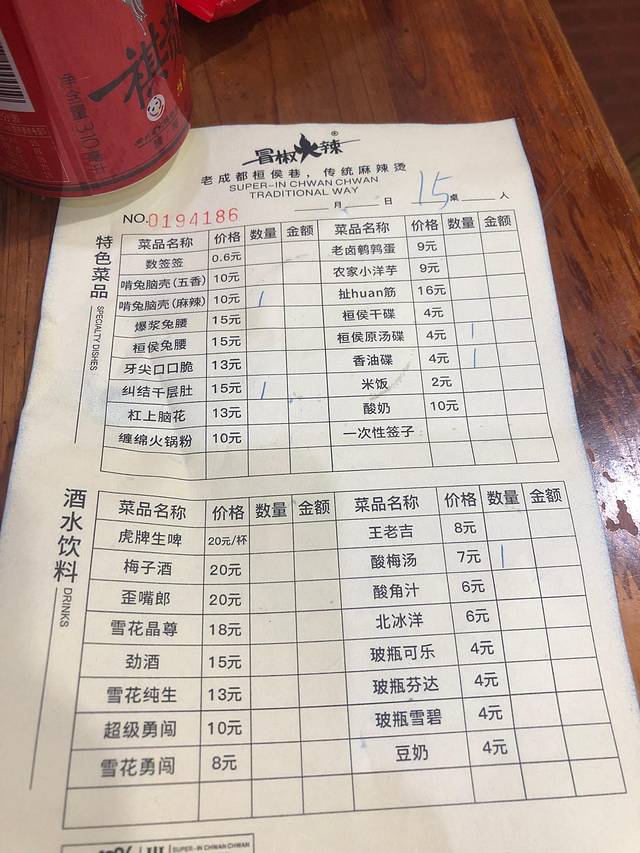 祺
净含量310毫升
冒椒火辣®
老成都桓侯巷，传统麻辣烫
SUPER-IN CHWAN CHWAN
TRADITIONAL WAY
月 日 15桌 人
NO.0194186
特色菜品 SPECIALTY DISHES
菜品名称 价格 数量 金额 菜品名称 价格 数量 金额
数签签 0.6元 老卤鹌鹑蛋 9元
啃兔脑壳(五香) 10元 农家小洋芋 9元
啃兔脑壳(麻辣) 10元 1 扯huan筋 16元
爆浆兔腰 15元 桓侯干碟 4元
桓侯兔腰 15元 桓侯原汤碟 4元 1
牙尖口口脆 13元 香油碟 4元 1
纠结千层肚 15元 1 米饭 2元
杠上脑花 13元 酸奶 10元
缠绵火锅粉 10元 一次性签子
酒水饮料 DRINKS
菜品名称 价格 数量 金额 菜品名称 价格 数量 金额
虎牌生啤 20元/杯 王老吉 8元
梅子酒 20元 酸梅汤 7元 1
歪嘴郎 20元 酸角汁 6元
雪花晶尊 18元 北冰洋 6元
劲酒 15元 玻瓶可乐 4元
雪花纯生 13元 玻瓶芬达 4元
超级勇闯 10元 玻瓶雪碧 4元
雪花勇闯 8元 豆奶 4元
SUPER-IN CHWAN CHWAN